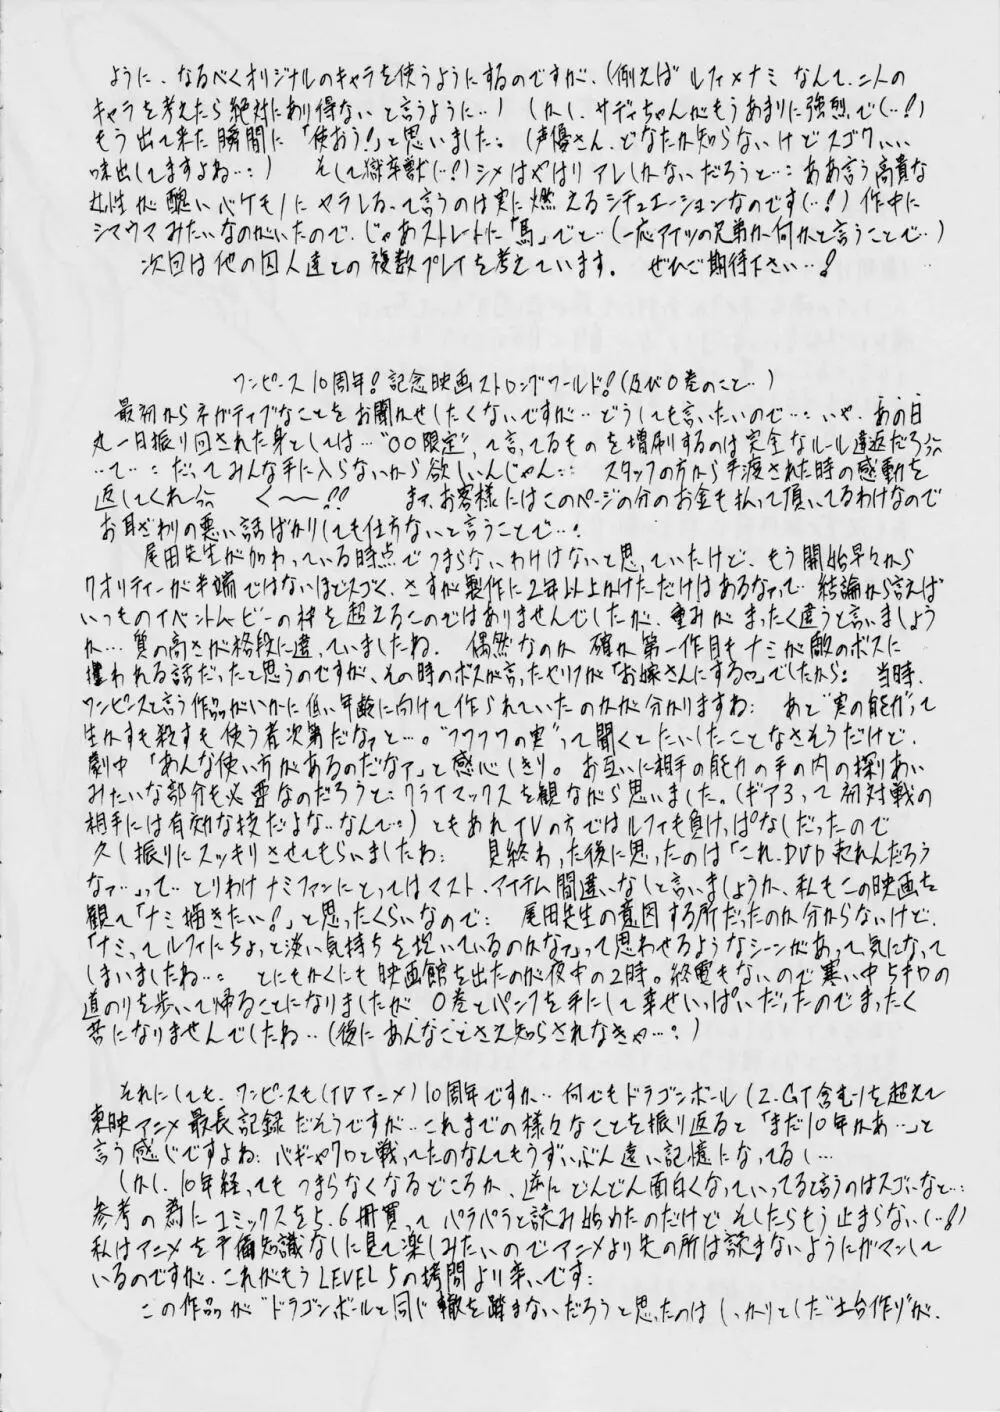 ように、なるべくオリジナルのキャラを使うようにするのですが、(例えば ルフィ×ナミ なんて、二人の
キャラを考えたら絶対にあり得ない と言うように‥) しかし、サディちゃんがもうあまりに強烈で(‥!)
もう出て来た瞬間に「使おう!」と思いました: (声優さん、どなたか知らないけどスゴクいい
味出してますよね‥:) そして獄卒獣(‥!)シメはやはり アレしかないだろうと‥: ああ言う高貴な
女性が醜いバケモノにヤラレるって言うのは実に燃えるシチュエーションなのです(‥!) 作中に
シマウマみたいなのがいたので、じゃあストレートに「馬」でと‥(一応アイツの兄弟か何かと言うことで‥)
次回は他の囚人達との複数プレイを考えています。 ぜひご期待下さい‥!
ワンピース10周年!記念映画ストロングワールド!(及び0巻のこと‥)
最初からネガティブなことをお聞かせしたくないですが‥どうしても言いたいので‥: いや、あの日
丸一日振り回された身としては‥"○○限定"って言ってるものを増刷するのは完全なルール違反だろ
‥て‥: だってみんな手に入らないから欲しいんじゃん:: スタッフの方から手渡された時の感動を
返してくれ く〜!! まァ、お客様にはこのページの分のお金も払って頂いてるわけなので
お耳ざわりの悪い話ばかりしても仕方ないと言うことで‥:
尾田先生が加わっている時点でつまらないわけはないと思っていたけど、もう開始早々から
クオリティーが半端ではないほどスゴく、さすが製作に2年以上かけただけはあるなって‥ 結論から言えば
いつものイベントムービーの枠を超えるものではありませんでしたが、重みがまったく違うと言いましょう
か‥ 質の高さが格段に違っていましたね。 偶然なのか 確か第一作目もナミが敵のボスに
攫われる話だったと思うのですが、その時のボスが言ったセリフが「お嫁さんにする♡」でしたから: 当時、
ワンピースと言う作品がいかに低い年齢に向けて作られていたのかが分かりますね: あと"実の能力"って
生かすも殺すも使う者次第だなァと‥。"フワフワの実"って聞くとたいしたことなさそうだけど、
劇中「あんな使い方があるのだなァ」と感心しきり。お互いに相手の能力の手の内の探りあい
みたいな部分も必要なのだろうと: クライマックスを観ながら思いました。(ギア3って初対戦の
相手には有効な技だよな‥なんて‥:) ともあれTVの方ではルフィも負けっぱなしだったので
久し振りにスッキリさせてもらいましたね: 見終わった後に思ったのは「これ、DVD売れんだろう
なァ‥」って‥ とりわけナミファンにとってはマスト・アイテム間違いなしと言いましょうか、私もこの映画を
観て「ナミ描きたい!」と思ったくらいなので: 尾田先生の意図する所だったのか分からないけど、
「ナミってルフィにちょっと淡い気持ちを抱いているのかなァ」って思わせるようなシーンがあって、気になって
しまいましたね‥: とにもかくにも 映画館を出たのが夜中の2時。終電もないので寒い中5キロの
道のりを歩いて帰ることになりましたが 0巻とパンフを手にして幸せいっぱいだったのでまったく
苦になりませんでしたね‥(後にあんなことさえ知らされなきゃ‥:)
それにしても、ワンピースも(TVアニメ)10周年ですか‥何でもドラゴンボール(Z・GT含む)を超えて
東映アニメ最長記録だそうですが‥これまでの様々なことを振り返ると「まだ10年かあ‥」と
言う感じですよね: バギーやクロと戦ってたのなんてもうずいぶん遠い記憶になってるし‥
しかし、10年経ってもつまらなくなるどころか、逆にどんどん面白くなっていってると言うのはスゴいなと‥:
参考の為にコミックスを5、6冊買ってパラパラと読み始めたのだけどそしたらもう止まらない(‥!)
私はアニメを予備知識なしに見て楽しみたいのでアニメより先の所は読まないようにガマンして
いるのですが、これがもうLEVEL5の拷問より辛いです:
この作品が"ドラゴンボールと同じ轍を踏まないだろうと思ったのはしっかりとした"土台作り"が、